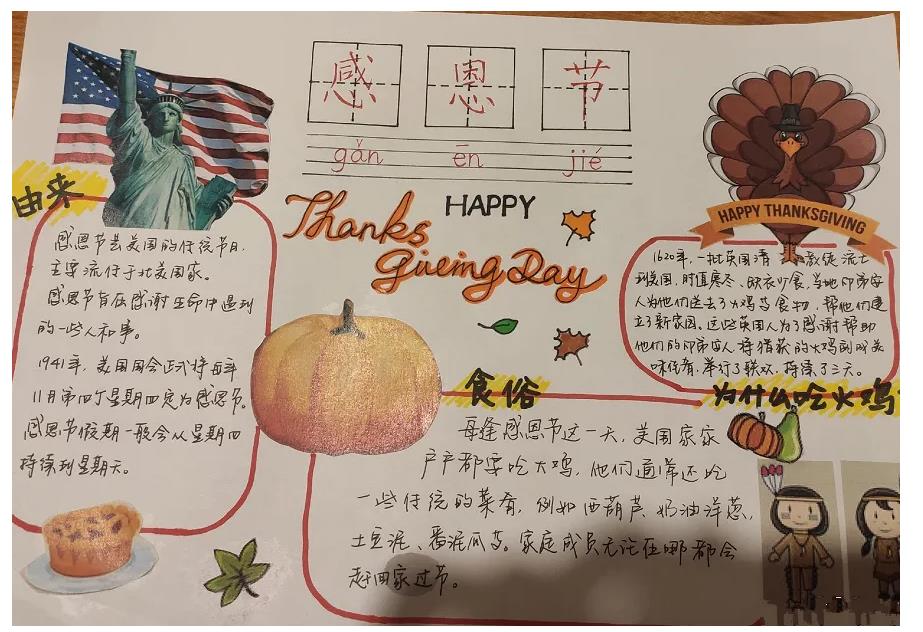 感恩节
gǎn ēn jié
HAPPY
Thanks
Giveing Day
HAPPY THANKSGIVING
由来
感恩节是美国的传统节日,
主要流行于北美国家。
感恩节旨在感谢生命中遇到
的一些人和事。
1941年,美国国会正式将每年
11月第四个星期四定为感恩节。
感恩节假期一般会从星期四
持续到星期天。
1620年,一批英国清 教徒 流亡
到美国,时值寒冬,缺衣少食,当地印第安
人为他们送去了火鸡等食物,帮他们建
立了新家园。这些英国人为了感谢帮助
他们的印第安人,将猎获的火鸡制成美
味佳肴,举行了联欢,持续了三天。
为什么吃火鸡
食俗
每逢感恩节这一天,美国家家
户户都要吃火鸡,他们通常还吃
一些传统的菜肴,例如西葫芦、奶油洋葱,
土豆泥、番泥瓜等。家庭成员无论在哪都会
赶回家过节。